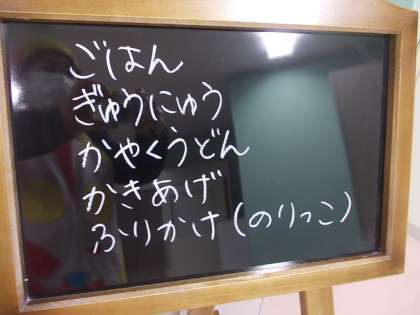 ごはん
ぎゅうにゅう
かやくうどん
かきあげ
ふりかけ(のりっこ)